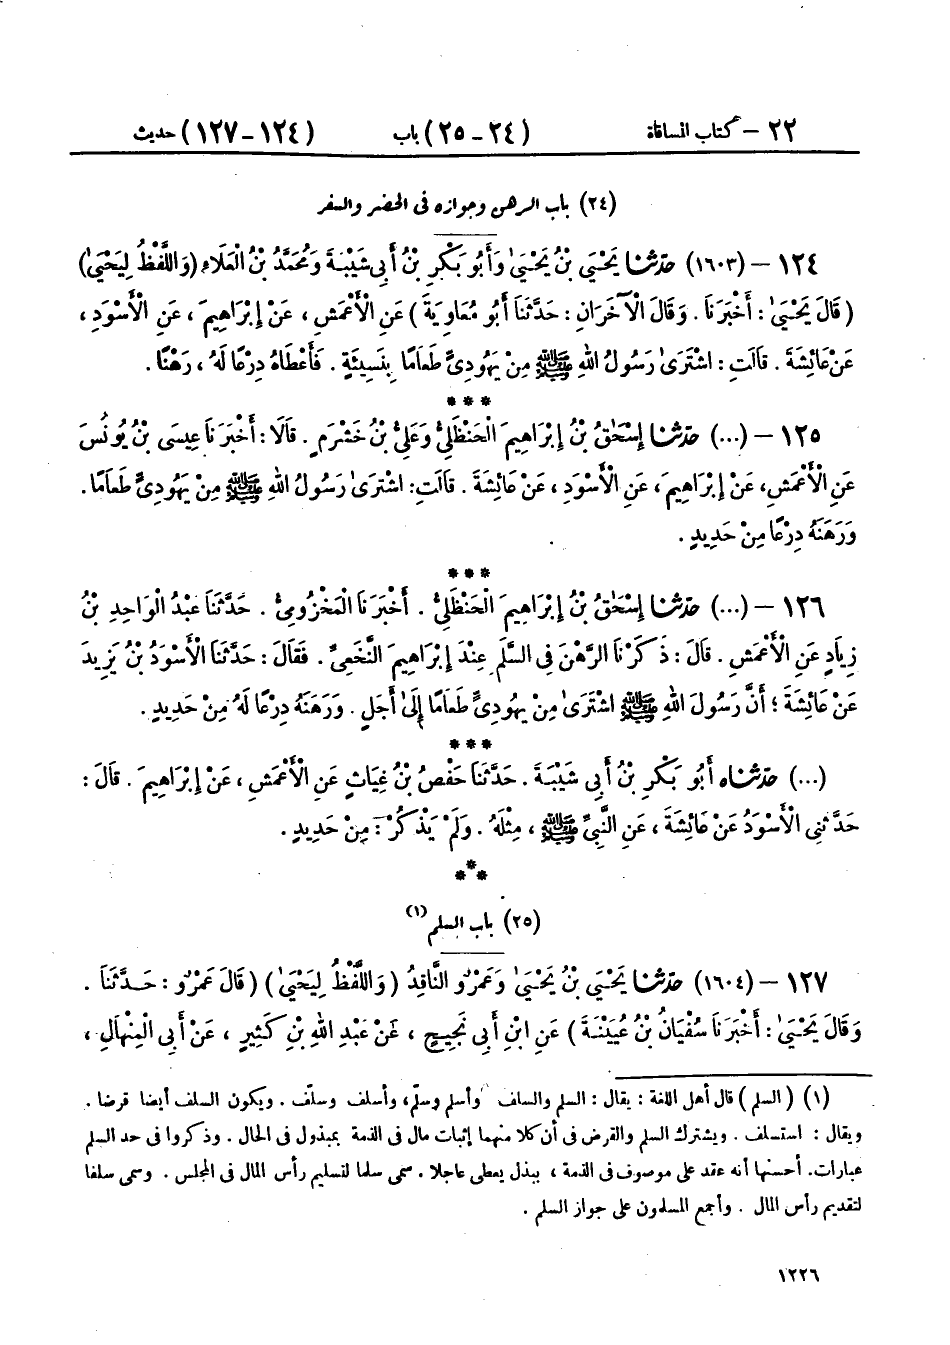 ٢٢ – كتاب المساقاة (٢٤ – ٢٥) باب (١٢٤ – ١٢٧) حديث
(٢٤) باب الرهن وجوازه فى الحضر والسفر
١٢٤ – (١٦٠٣) حَدَّثَنَا يَحْيَىٰ بْنُ يَحْيَىٰ وَأَبُو بَكْرِ بْنُ أَبِي شَيْبَةَ وَمُحَمَّدُ بْنُ الْعَلَاءِ (وَاللَّفْظُ لِيَحْيَىٰ)
(قَالَ يَحْيَىٰ: أَخْبَرَنَا. وَقَالَ الْآخَرَانِ: حَدَّثَنَا أَبُو مُعَاوِيَةَ) عَنِ الْأَعْمَشِ، عَنْ إِبْرَاهِيمَ، عَنِ الْأَسْوَدِ،
عَنْ عَائِشَةَ. قَالَتِ: اشْتَرَىٰ رَسُولُ اللهِ ﷺ مِنْ يَهُودِيٍّ طَعَامًا بِنَسِيئَةٍ. فَأَعْطَاهُ دِرْعًا لَهُ، رَهْنًا.
* * *
١٢٥ – (...) حَدَّثَنَا إِسْحَٰقُ بْنُ إِبْرَاهِيمَ الْحَنْظَلِيُّ وَعَلِيُّ بْنُ خَشْرَمٍ. قَالَا: أَخْبَرَنَا عِيسَى بْنُ يُونُسَ
عَنِ الْأَعْمَشِ، عَنْ إِبْرَاهِيمَ، عَنِ الْأَسْوَدِ، عَنْ عَائِشَةَ. قَالَتِ: اشْتَرَىٰ رَسُولُ اللهِ ﷺ مِنْ يَهُودِيٍّ طَعَامًا.
وَرَهَنَهُ دِرْعًا مِنْ حَدِيدٍ.
* * *
١٢٦ – (...) حَدَّثَنَا إِسْحَٰقُ بْنُ إِبْرَاهِيمَ الْحَنْظَلِيُّ. أَخْبَرَنَا الْمَخْزُومِيُّ. حَدَّثَنَا عَبْدُ الْوَاحِدِ بْنُ
زِيَادٍ عَنِ الْأَعْمَشِ. قَالَ: ذَكَرْنَا الرَّهْنَ فِي السَّلَمِ عِنْدَ إِبْرَاهِيمَ النَّخَعِيِّ. فَقَالَ: حَدَّثَنَا الْأَسْوَدُ بْنُ يَزِيدَ
عَنْ عَائِشَةَ؛ أَنَّ رَسُولَ اللهِ ﷺ اشْتَرَىٰ مِنْ يَهُودِيٍّ طَعَامًا إِلَىٰ أَجَلٍ. وَرَهَنَهُ دِرْعًا لَهُ مِنْ حَدِيدٍ.
* * *
(...) حَدَّثَنَاه أَبُو بَكْرِ بْنُ أَبِي شَيْبَةَ. حَدَّثَنَا حَفْصُ بْنُ غِيَاثٍ عَنِ الْأَعْمَشِ، عَنْ إِبْرَاهِيمَ. قَالَ:
حَدَّثَنِي الْأَسْوَدُ عَنْ عَائِشَةَ، عَنِ النَّبِيِّ ﷺ، مِثْلَهُ. وَلَمْ يَذْكُرْ: مِنْ حَدِيدٍ.
* * *
(٢٥) باب السلم (١)
١٢٧ – (١٦٠٤) حَدَّثَنَا يَحْيَىٰ بْنُ يَحْيَىٰ وَعَمْرٌو النَّاقِدُ (وَاللَّفْظُ لِيَحْيَىٰ) (قَالَ عَمْرٌو: حَدَّثَنَا.
وَقَالَ يَحْيَىٰ: أَخْبَرَنَا سُفْيَانُ بْنُ عُيَيْنَةَ) عَنِ ابْنِ أَبِي نَجِيحٍ، عَنْ عَبْدِ اللهِ بْنِ كَثِيرٍ، عَنْ أَبِي الْمِنْهَالِ،
(١) (السلم) قال أهل اللغة: يقال: السلم والسلف وأسلم وسلّم، وأسلف وسلّف. ويكون السلف أيضا قرضا.
ويقال: استسلف. ويشترك السلم والقرض فى أن كلا منهما إثبات مال فى الذمة بمبذول فى الحال. وذكروا فى حد السلم
عبارات. أحسنها أنه عقد على موصوف فى الذمة، ببذل يعطى عاجلا. سمى سلما لتسليم رأس المال فى المجلس. وسمى سلفا
لتقديم رأس المال. وأجمع المسلمون على جواز السلم.
١٢٢٦